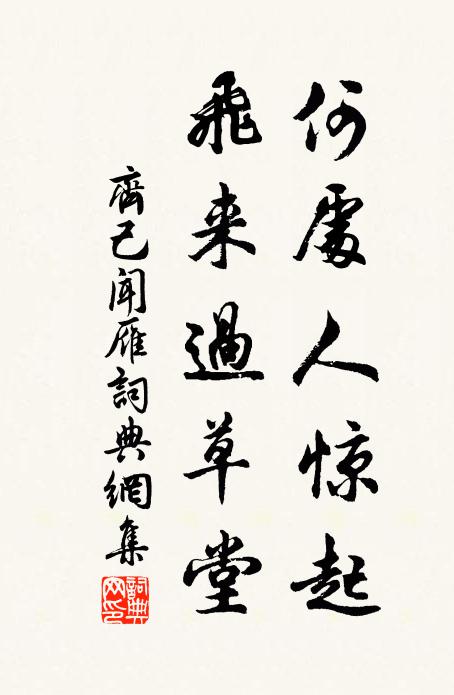 何處人惊起
飛来過草堂
齊己聞雁詞典網集
詞典網印